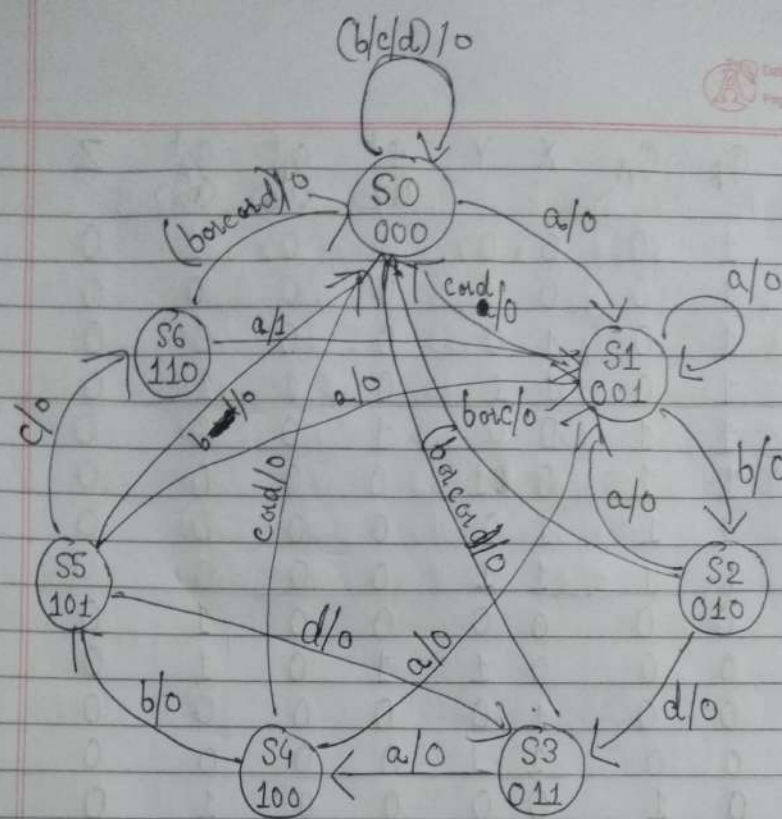 (b/c/d)/0
S0
000
(borcord)/0
a/0
cord
/0
a/0
S6
110
a/1
S1
001
c/0
b /0
a/0
borc/0
b/0
cord/0
(borcord)/0
a/0
S5
101
S2
010
d/0
a/0
b/0
d/0
S4
100
a/0
S3
011